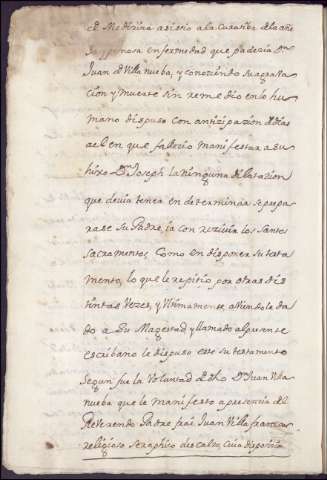 en Medizina asistio a la curazion de la año
y penosa enfermedad que padezia Dn
Juan de Villanueba, y conoziendo su agrava
cion y muerte sin remedio en lo hu
mano dispuso con antizipazion de dias
a el en que fallezio manifestar a su
hixo Dn Joseph la ninguna dilatazion
que devia tener en determinar se prepa
rase su Padre, ia con rezivir los santos
sacramentos, como en disponer su testa
mento, lo que le repitio por otras dis
tintas vezes, y Ultimamente, aviendole da
do a Su Magestad y llamado al presente
escribano le dispuso este su testamento
segun fue la Voluntad de dho Dn Juan Villa
nueba que le manifesto a presencia del
Reverendo Padre frai Juan Villafranca
religioso seraphico descalzo, cuia disposizn